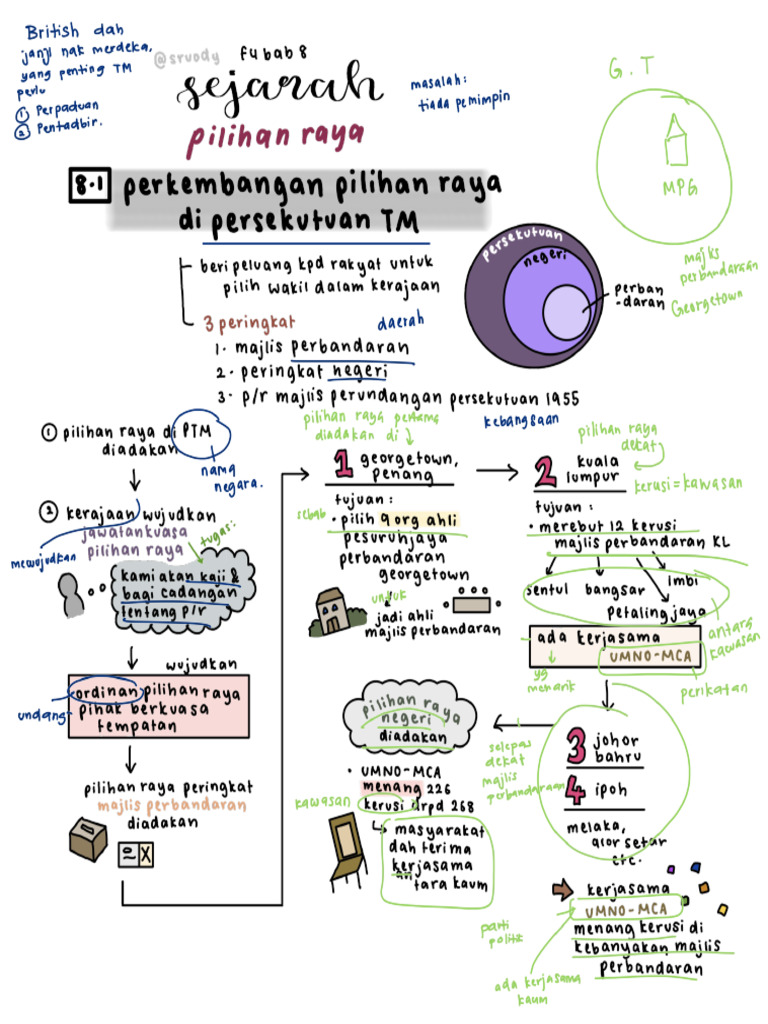 British dah
janji nak merdeka,
yang penting TM
perlu
① Perpaduan
② Pentadbir.
@sruody
F4 bab 8
sejarah
pilihan raya
masalah:
tiada pemimpin
G.T
MPG
majlis
perbandaraan
Georgetown
8.1 perkembangan pilihan raya
di persekutuan TM
beri peluang kpd rakyat untuk
pilih wakil dalam kerajaan
3 peringkat
daerah
1. majlis perbandaran
2. peringkat negeri
3. p/r majlis perundangan persekutuan 1955
kebangsaan
persekutuan
negeri
perban
-daran
① pilihan raya di PTM
diadakan
nama
negara.
② kerajaan wujudkan
jawatankuasa
pilihan raya
mewujudkan
tugas:
kami akan kaji &
bagi cadangan
tentang p/r
wujudkan
ordinan pilihan raya
pihak berkuasa
tempatan
undang-
pilihan raya peringkat
majlis perbandaran
diadakan
pilihan raya pertama
diadakan di
1 georgetown,
penang
tujuan:
sebab
• pilih 9 org ahli
pesuruhjaya
perbandaran
georgetown
untuk
jadi ahli
majlis perbandaran
pilihan raya
dekat
2 kuala
lumpur
kerusi = kawasan
tujuan:
• merebut 12 kerusi
majlis perbandaran KL
sentul bangsar imbi
petaling jaya
antara
kawasan
ada kerjasama
UMNO-MCA
yg
menarik
perikatan
3 johor
bahru
4 ipoh
melaka,
alor setar
etc.
selepas
dekat
majlis
perbandaraan
pilihan raya
negeri
diadakan
• UMNO-MCA
menang 226
kerusi drpd 268
kawasan
masyarakat
dah terima
kerjasama
an
tara kaum
kerjasama
UMNO-MCA
menang kerusi di
kebanyakan majlis
perbandaran
parti
politik
ada kerjasama
kaum